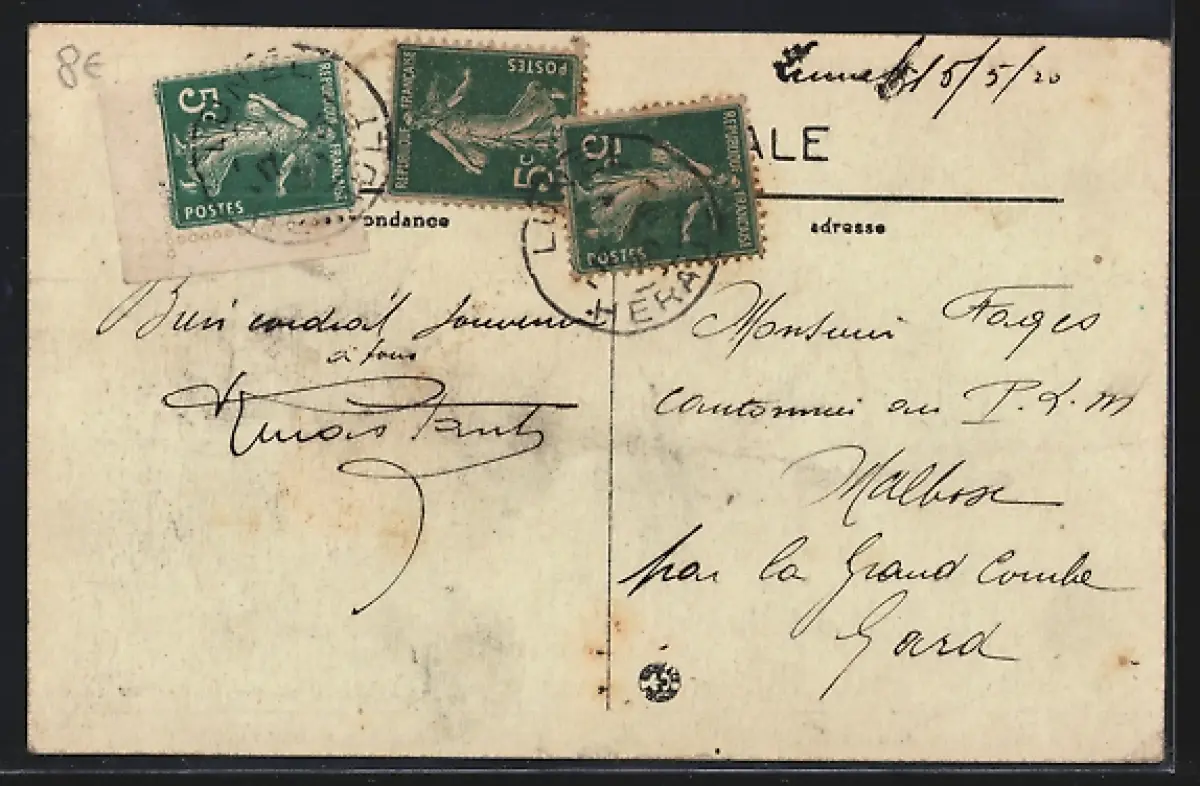 8€
5c
REPUBLIQUE FRANÇAISE
POSTES
REPUBLIQUE FRANÇAISE
POSTES
5c
5c
REPUBLIQUE FRANÇAISE
POSTES
HERAULT
HERA
5/5/20
ALE
ondance
adresse
Bien cordial souvenir
à tous
Monsieur Fages
cantonnier au P.L.M
Malbosc
par la Grand Combe
Gard